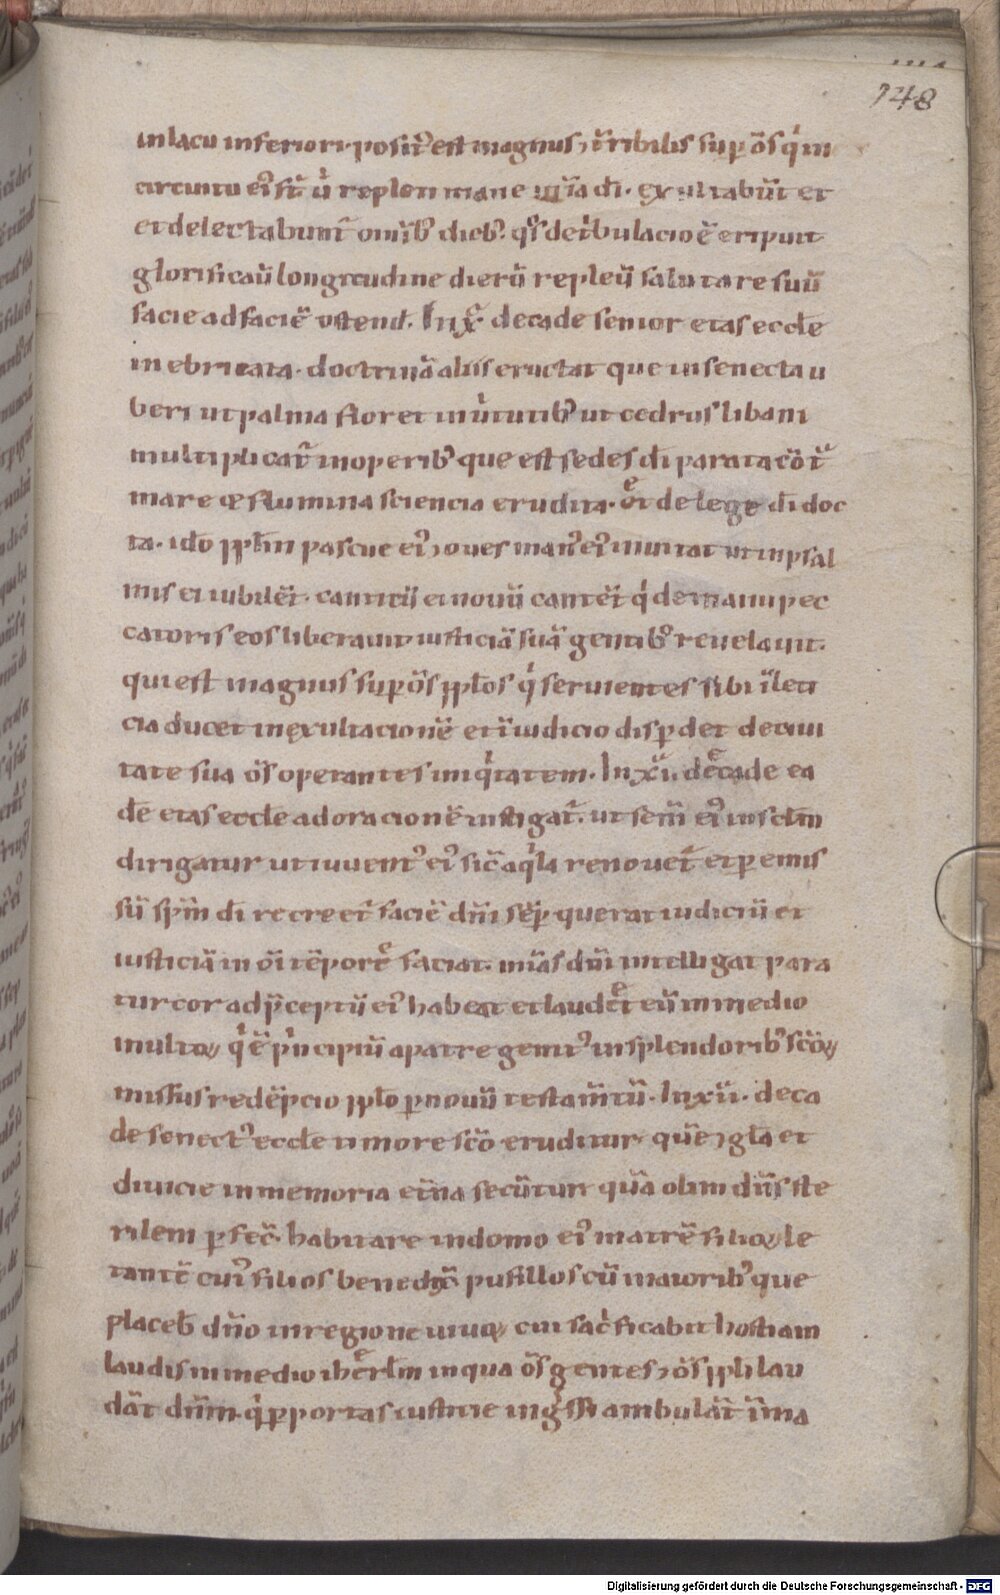 148
in lacu inferiori· posit᷒ est magnus ⁊ t̄ribilis sup̄ om̄s q̇ in
circuitu ei᷒ s̄t ū repleti mane mīa dī· exultabūt et
et delectabunt᷑ om̄ib᷒ dieb᷒· q̇s de t̄bulacioē eripuit
glorificaū longitudine dierū repleū salutare suū
facie ad faciē ostend̄· In x͛ decade senior etas eccl̄e
inebriata· doctrinā aliis eructat que in senecta u
beri ut palma floret in ūtutib᷒ ut cedrus libani
multiplicat᷑ in operib᷒ que est sedes dī parata cō t᷑
mare & flumina sciencia erudita· et de lege dī doc
ta· idō ppl̄m pascue ei᷒ ⁊ oues man᷒ ei᷒ inuitat ut in psal
mis ei iubilēt· canticū ei nouū cantēt q̇ de manu pec
catoris eos liberauit iusticiā suā gentib᷒ reuelauit·
qui est magnus sup̄ om̄s ppl̄os q̇ seruientes sibi ī leti
cia ducet in exultacionē et ī iudicio disp̄det de ciui
tate sua om̄s operantes iniq̇tatem· In xı͛· decade ea
dē etas eccl̄e adoracionē instigat᷑· ut sem̄ ei᷒ in sc̄lm
dirigatur ut iuuent᷒ ei᷒ sic̄ aq̇la renouet᷑ et p̄ emis
sū sp̄m dī recreet᷑ faciē dn̄i sēp̄ querat iudiciū et
iusticiā in om̄i tēpore faciat· mīas dn̄i intelligat para
tur cor ad p̄ceptū ei᷒ habeat et laudet eū in medio
multoꝝ q̇ ē ṗncipiū a patre genit᷒ in splendorib᷒ sc̄oꝝ
missus redēpcio ppl̄o p̄ nouū testam̄tū· In xii· deca
de senect᷒ eccl̄e timore sc̄o eruditur· quē ⁊ gl̄a et
diuicie in memoria et̄na secūtur quā olim dn̄s ste
rilem p̄fec̄· habitare in domo ei᷒ matrē filioꝝ le
tantē cui᷒ filios benedic̄ pusillos cū maiorib᷒ que
placeb̄ dn̄o in regione uiuoꝝ cui sac̄ficabit hostiam
laudis in medio iherl̄m in qua om̄s gentes ⁊ om̄s ppl̄i lau
dāt dn̄m· q̇ p̄ portas iusticie ing̊ssi ambulāt
Digitalisierung gefördert durch die Deutsche Forschungsgemeinschaft - DFG